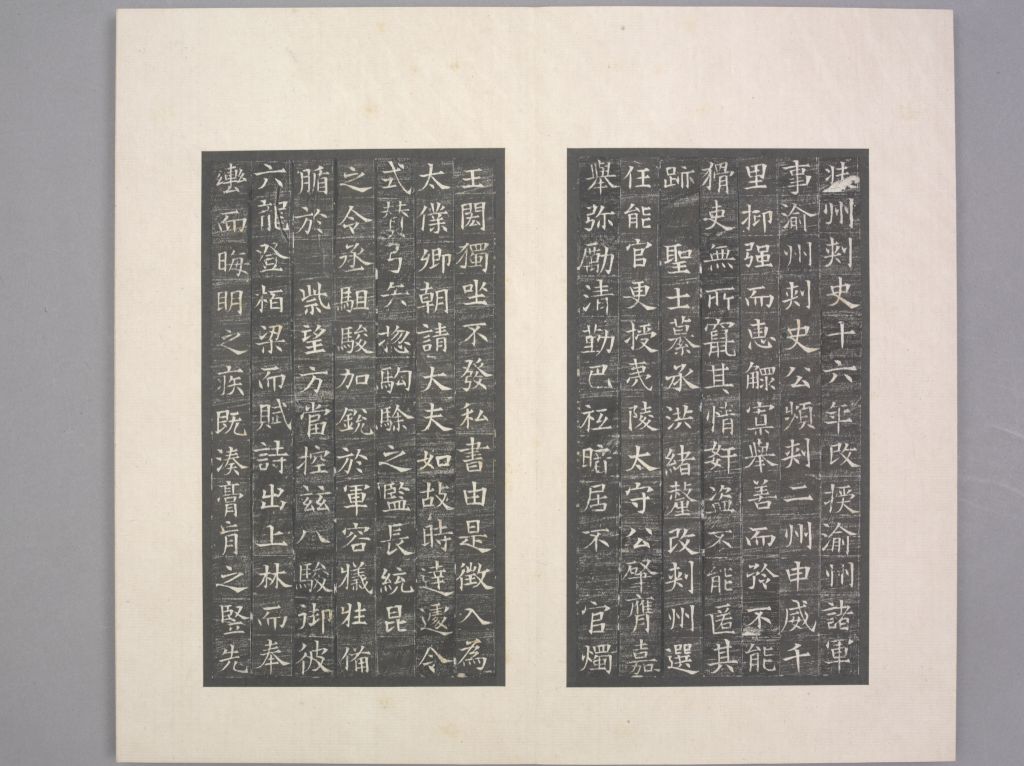 州刾史十六年改授渝州諸軍
事渝州刾史公頻刾二州申威千
里抑强而惠鰥寡舉善而矜不能
猾吏無所竄其情姧盜不能匿其
跡 聖上纂丞洪緒釐改刾州選
任能官更授夷陵太守公肈膺嘉
舉弥勵清勤巴祇居不 官燭
王閎獨坐不發私書由是徵入為
太僕卿朝請大夫如故時達遽令
式賛弓矢惣駒騟之監長統昆
之令丞駔駿加銳於軍容犠牲俻
腯於 祡望方當控兹八駿御彼
六龍登栢梁而賦詩出上林而奉
轡而晦明之疾既湊膏肓之豎先